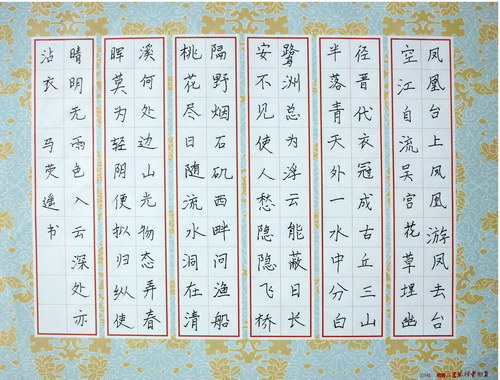 凤凰台上凤凰游凤去台
空江自流吴宫花草埋幽
径晋代衣冠成古丘三山
半落青天外一水中分白
鹭洲总为浮云能蔽日长
安不见使人愁隐隐飞桥
隔野烟石矶西畔问渔船
桃花尽日随流水洞在清
溪何处边山光物态弄春
晖莫为轻阴便拟归纵使
晴明无雨色入云深处亦
沾衣 马荧遥书